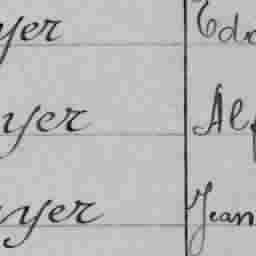 yer Edo
yer Alp
yer Jean